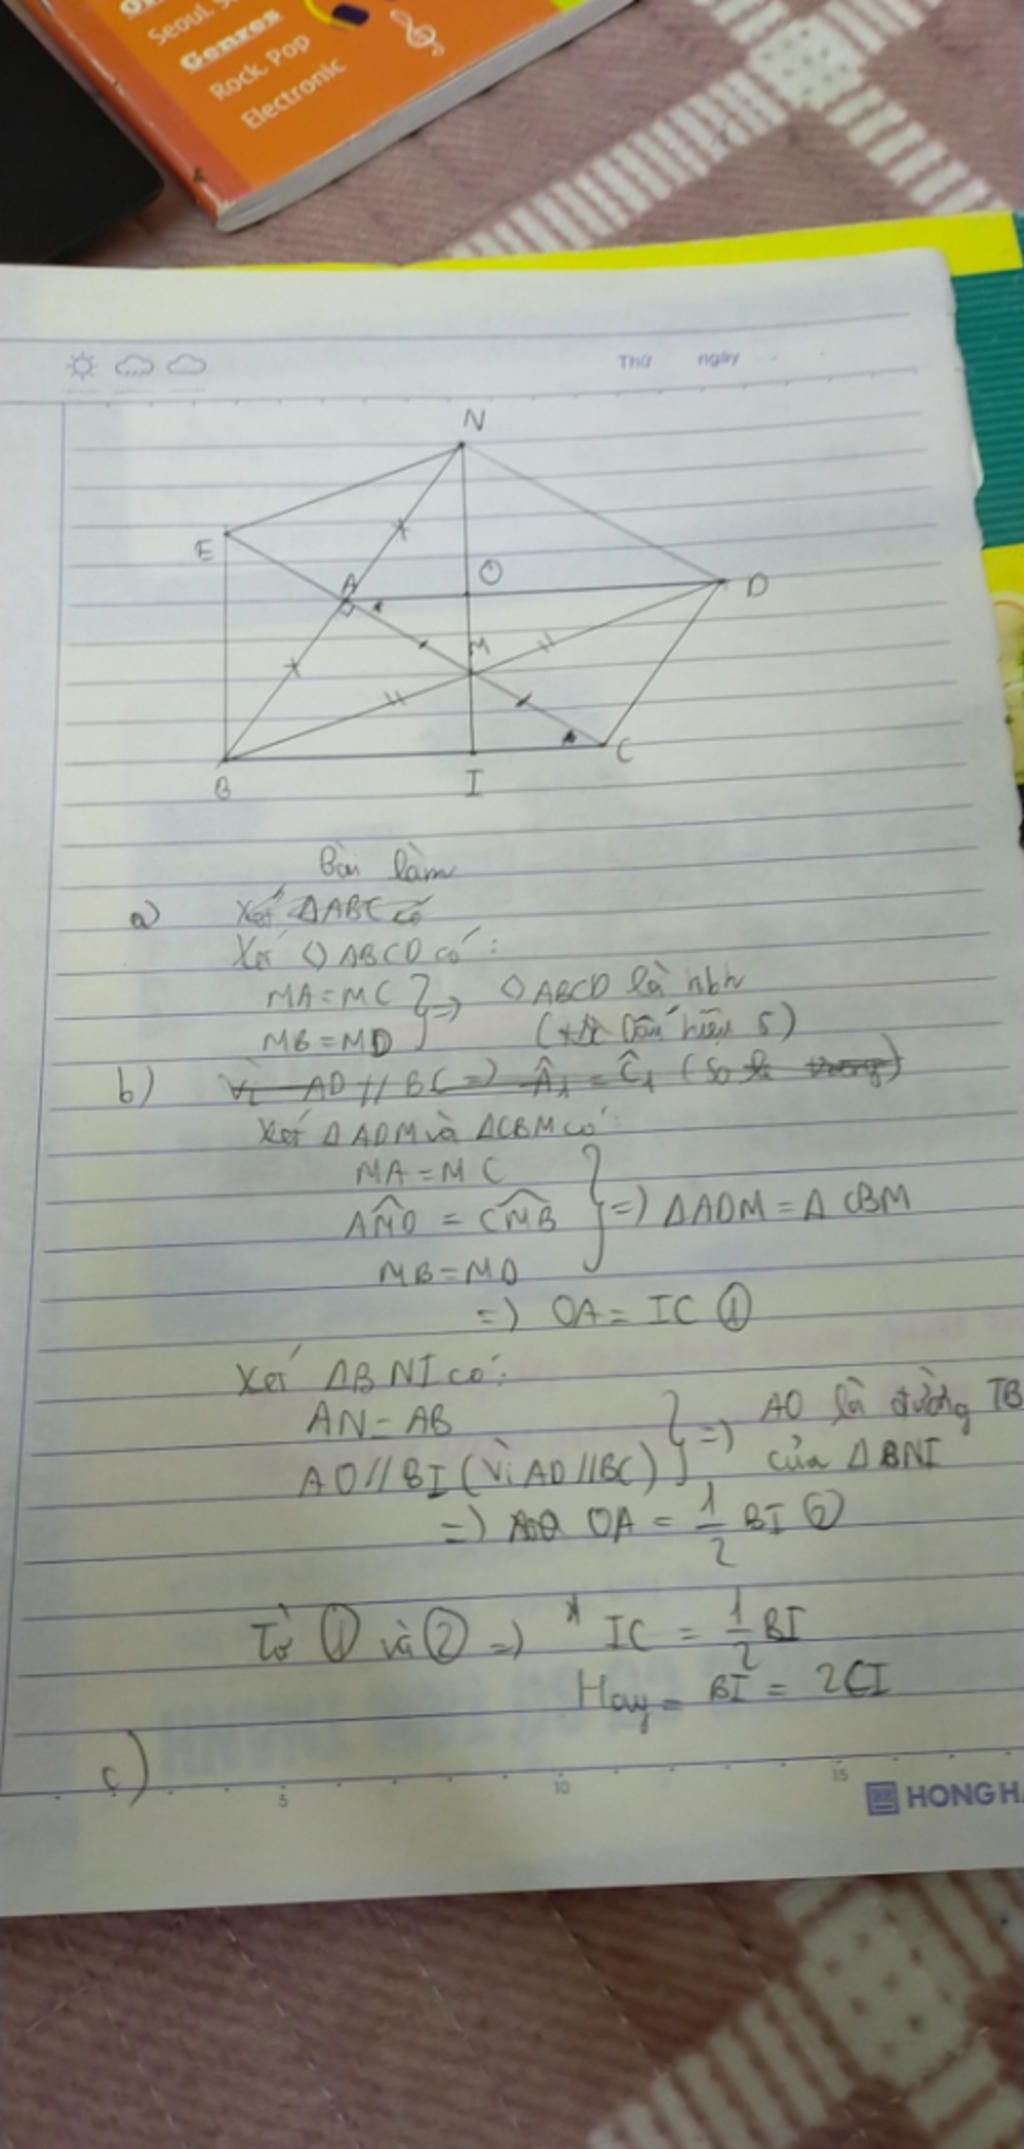 Seoul, S
Genres
Rock, Pop
Electronic
Thứ ngày
N
E
A
O
D
M
B
I
C
Bài làm
a) Xét ΔABC có
Xét ◊ ABCD có :
MA = MC } => ◊ ABCD là hbh
MB = MD (dấu hiệu 5)
b) Vì AD // BC => Â₁ = Ĉ₁ (So le trong)
Xét Δ ADM và ΔCBM có :
MA = MC
AM̂D = CM̂B } => ΔADM = Δ CBM
MB = MD
=> OA = IC ①
Xét ΔBNI có :
AN = AB } => AO là đường TB
AO // BI (Vì AD // BC) của Δ BNI
=> OA = 1/2 BI ②
Từ ① và ② => * IC = 1/2 BI
Hay = BI = 2CI
c)
5 10 15
HONG H